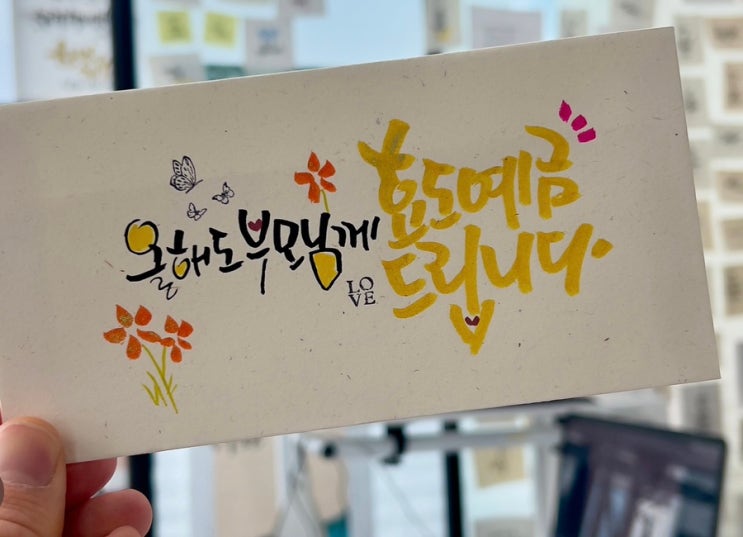 올해도 부모님께
효도예금
드립니다.
LO
VE